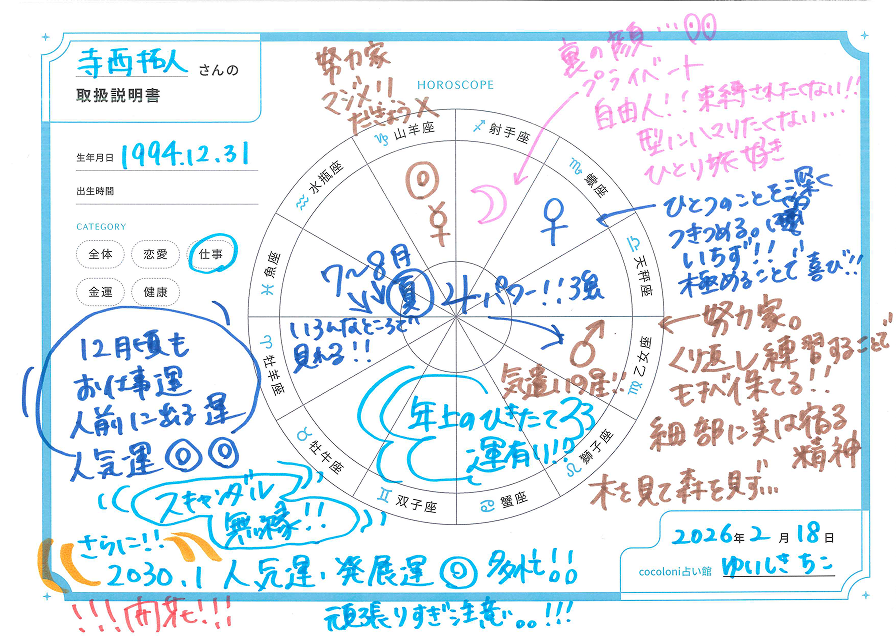 寺西拓人 さんの
取扱説明書
生年月日 1994.12.31
出生時間
CATEGORY
全体 恋愛 仕事
金運 健康
HOROSCOPE
努力家
マジメ!!
山羊座
射手座
蠍座
天秤座
乙女座
獅子座
蟹座
双子座
牡牛座
牡羊座
魚座
水瓶座
裏の顔…
プライベート
自由人!!束縛されたくない!!
型にハマりたくない…
ひとり旅好き
ひとつのことを深く
つきつめる。
いちず!!
極めることで喜び!!
7〜8月
夏
パワー!!強
いろんなところで
見れる!!
努力家。
くり返し練習することで
モチベ保てる!!
細部に美は宿る
精神
木を見て森を見ず…
気遣いの星!!
年上のひきたて
運有い!!
12月頃も
お仕事運
人前に出る運
人気運◎◎
スキャンダル
無縁!!
さらに!!
2030.1 人気運・発展運◎
!!!開花!!!
頑張りすぎ注意。。!!!
2026年2月18日
cocoloni占い館 ゆいしきちこ